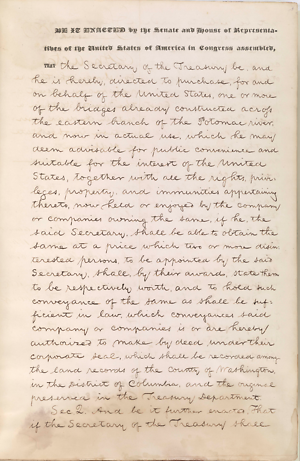 BE IT ENACTED by the Senate and House of Representa-
tives of the United States of America in Congress assembled,
THAT the Secretary of the Treasury be, and
he is hereby, directed to purchase, for and
on behalf of the United States, one or more
of the bridges already constructed across
the eastern branch of the Potomac river,
and now in actual use, which he may
deem advisable for public convenience and
suitable for the interest of the United
States, together with all the rights, privi-
leges, property, and immunities appertaining
thereto, now held or enjoyed by the company
or companies owning the same, if he, the
said Secretary, shall be able to obtain the
same at a price which two or more disin
terested persons, to be appointed by the said
Secretary, shall, by their award, state them
to be respectively worth, and to hold such
conveyance of the same as shall be suf-
ficient in law, which conveyances said
company or companies is or are hereby
authorized to make by deed under their
corporate seal, which shall be recorded among
the land records of the County of Washington
in the District of Columbia, and the original
preserved in the Treasury Department
Sec 2. And be it further enacted, That
if the Secretary of the Treasury shall